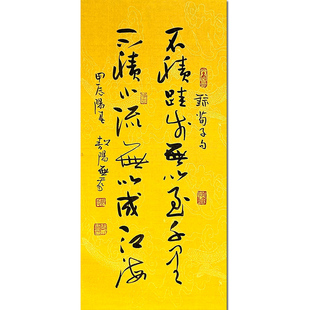 錄荀子句
不積跬步無以至千里
不積小流無以成江海
甲辰陽春